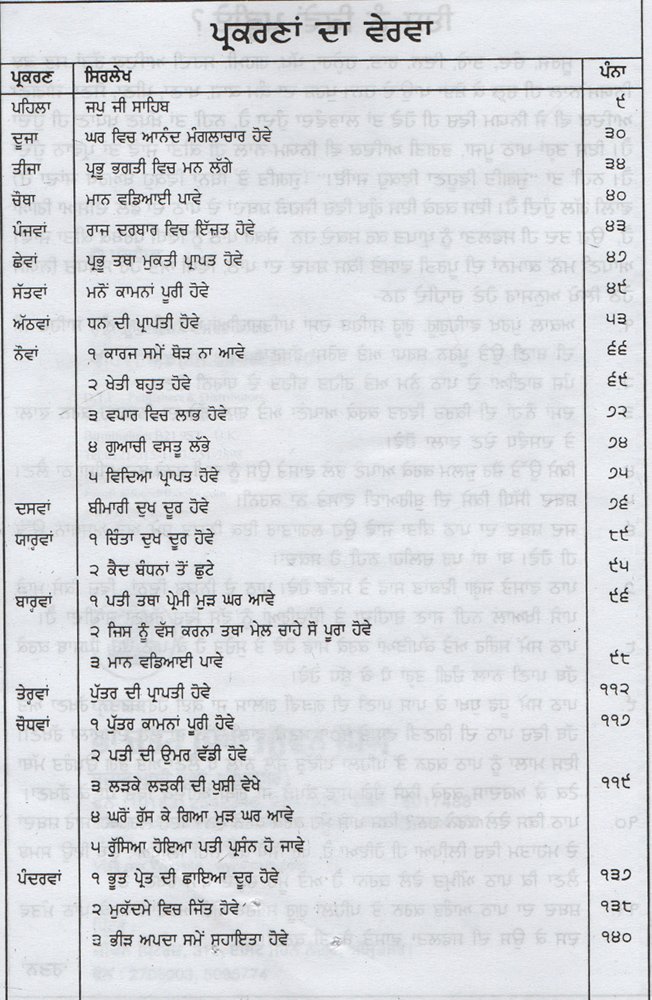 ਪ੍ਰਕਰਣਾਂ ਦਾ ਵੇਰਵਾ
ਪ੍ਰਕਰਣ ਸਿਰਲੇਖ ਪੰਨਾ
ਪਹਿਲਾ ਜਪ ਜੀ ਸਾਹਿਬ ੯
ਦੂਜਾ ਘਰ ਵਿਚ ਆਨੰਦ ਮੰਗਲਾਚਾਰ ਹੋਵੇ ੩੦
ਤੀਜਾ ਪ੍ਰਭੂ ਭਗਤੀ ਵਿਚ ਮਾਨ ਲੱਗੇ ੩੪
ਚੋਥਾ ਮਾਨ ਵਡਿਆਈ ਪਾਵੇਂ ੪੦
ਪੰਜਵਾਂ ਰਾਜ ਦਰਬਾਰ ਵਿਚ ਇੱਜ਼ਤ ਹੋਵੇ ੪੩
ਛੇਵਾਂ ਪ੍ਰਭੂ ਤਥਾ ਮੁਕਤੀ ਪ੍ਰਾਪਤ ਹੋਵੇ ੪੭
ਸੱਤਵਾਂ ਮਨੋਂ ਕਾਮਨਾਂ ਪੂਰੀ ਹੋਵੇ ੪੯
ਅੱਠਵਾਂ ਧਨ ਦੀ ਪ੍ਰਾਪਤੀ ਹੋਵੇ ੫੩
ਨੋਵਾਂ ੧ ਕਾਰਜ ਸਮੇਂ ਥੋੜ ਨਾ ਆਵੇ ੬੬
੨ ਖੇਤੀ ਬਹੁਤ ਹੋਵੇ ੬੯
੩ ਵਪਾਰ ਵਿਚ ਲਾਭ ਹੋਵੇ ੭੨
੪ ਗੁਆਚੀ ਵਸਤੂ ਲੱਭੇ ੭੪
੫ ਵਿਦਿਆ ਪ੍ਰਾਪਤ ਹੋਵੇ ੭੫
ਦਸਵਾਂ ਬੀਮਾਰੀ ਦੁਖ ਦੂਰ ਹੋਵੇ ੭੬
ਯਾਰ੍ਹਵਾਂ ੧ ਚਿੰਤਾ ਦੁਖ ਦੂਰ ਹੋਵੇ ੮੯
੨ ਕੈਦ ਬੰਧਨਾਂ ਤੋਂ ਛੁਟੇ ੯੫
ਬਾਰ੍ਹਵਾ ੧ ਪਤੀ ਤਥਾ ਪ੍ਰੇਮੀ ਮੁੜ ਘਰ ਆਵੇ ੯੬
੨ ਜਿਸ ਨੂੰ ਵੱਸ ਕਰਨਾ ਤਥਾ ਮੇਲ ਚਾਹੇ ਸੋ ਪੂਰਾ ਹੋਵੇ
੩ ਮਾਨ ਵਡਿਆਈ ਪਾਵੇ ੯੮
ਤੇਰ੍ਹਵਾਂ ਪੁੱਤਰ ਦੀ ਪ੍ਰਾਪਤੀ ਹੋਵੇ ੧੧੨
ਚੋਧਵਾਂ ੧ ਪੁੱਤਰ ਕਾਮਨਾਂ ਪੂਰੀ ਹੋਵੇ ੧੧੭
੨ ਪਤੀ ਦੀ ਉਮਰ ਵੱਡੀ ਹੋਵੇ
੩ ਲੜਕੇ ਲੜਕੀ ਦੀ ਖੁਸ਼ੀ ਵੇਖੇ ੧੧੯
੪ ਘਰੋਂ ਰੁੱਸ ਕੇ ਗਿਆ ਮੁੜ ਘਰ ਆਵੇ
੫ ਰੁੱਸਿਆ ਹੋਇਆ ਪਤੀ ਪ੍ਰਸੰਨ ਹੋ ਜਾਵੇ
ਪੰਦਰਵਾਂ ੧ ਭੂਤ ਪ੍ਰੇਤ ਦੀ ਛਾਇਆ ਦੂਰ ਹੋਵੇ ੧੩੭
੨ ਮੁਕੱਦਮੇ ਵਿਚ ਜਿੱਤ ਹੋਵੇ ੧੩੮
੩ ਭੀੜ ਅਪਦਾ ਸਮੇਂ ਸੁਹਾਇਤਾ ਹੋਵੇ ੧੪੦